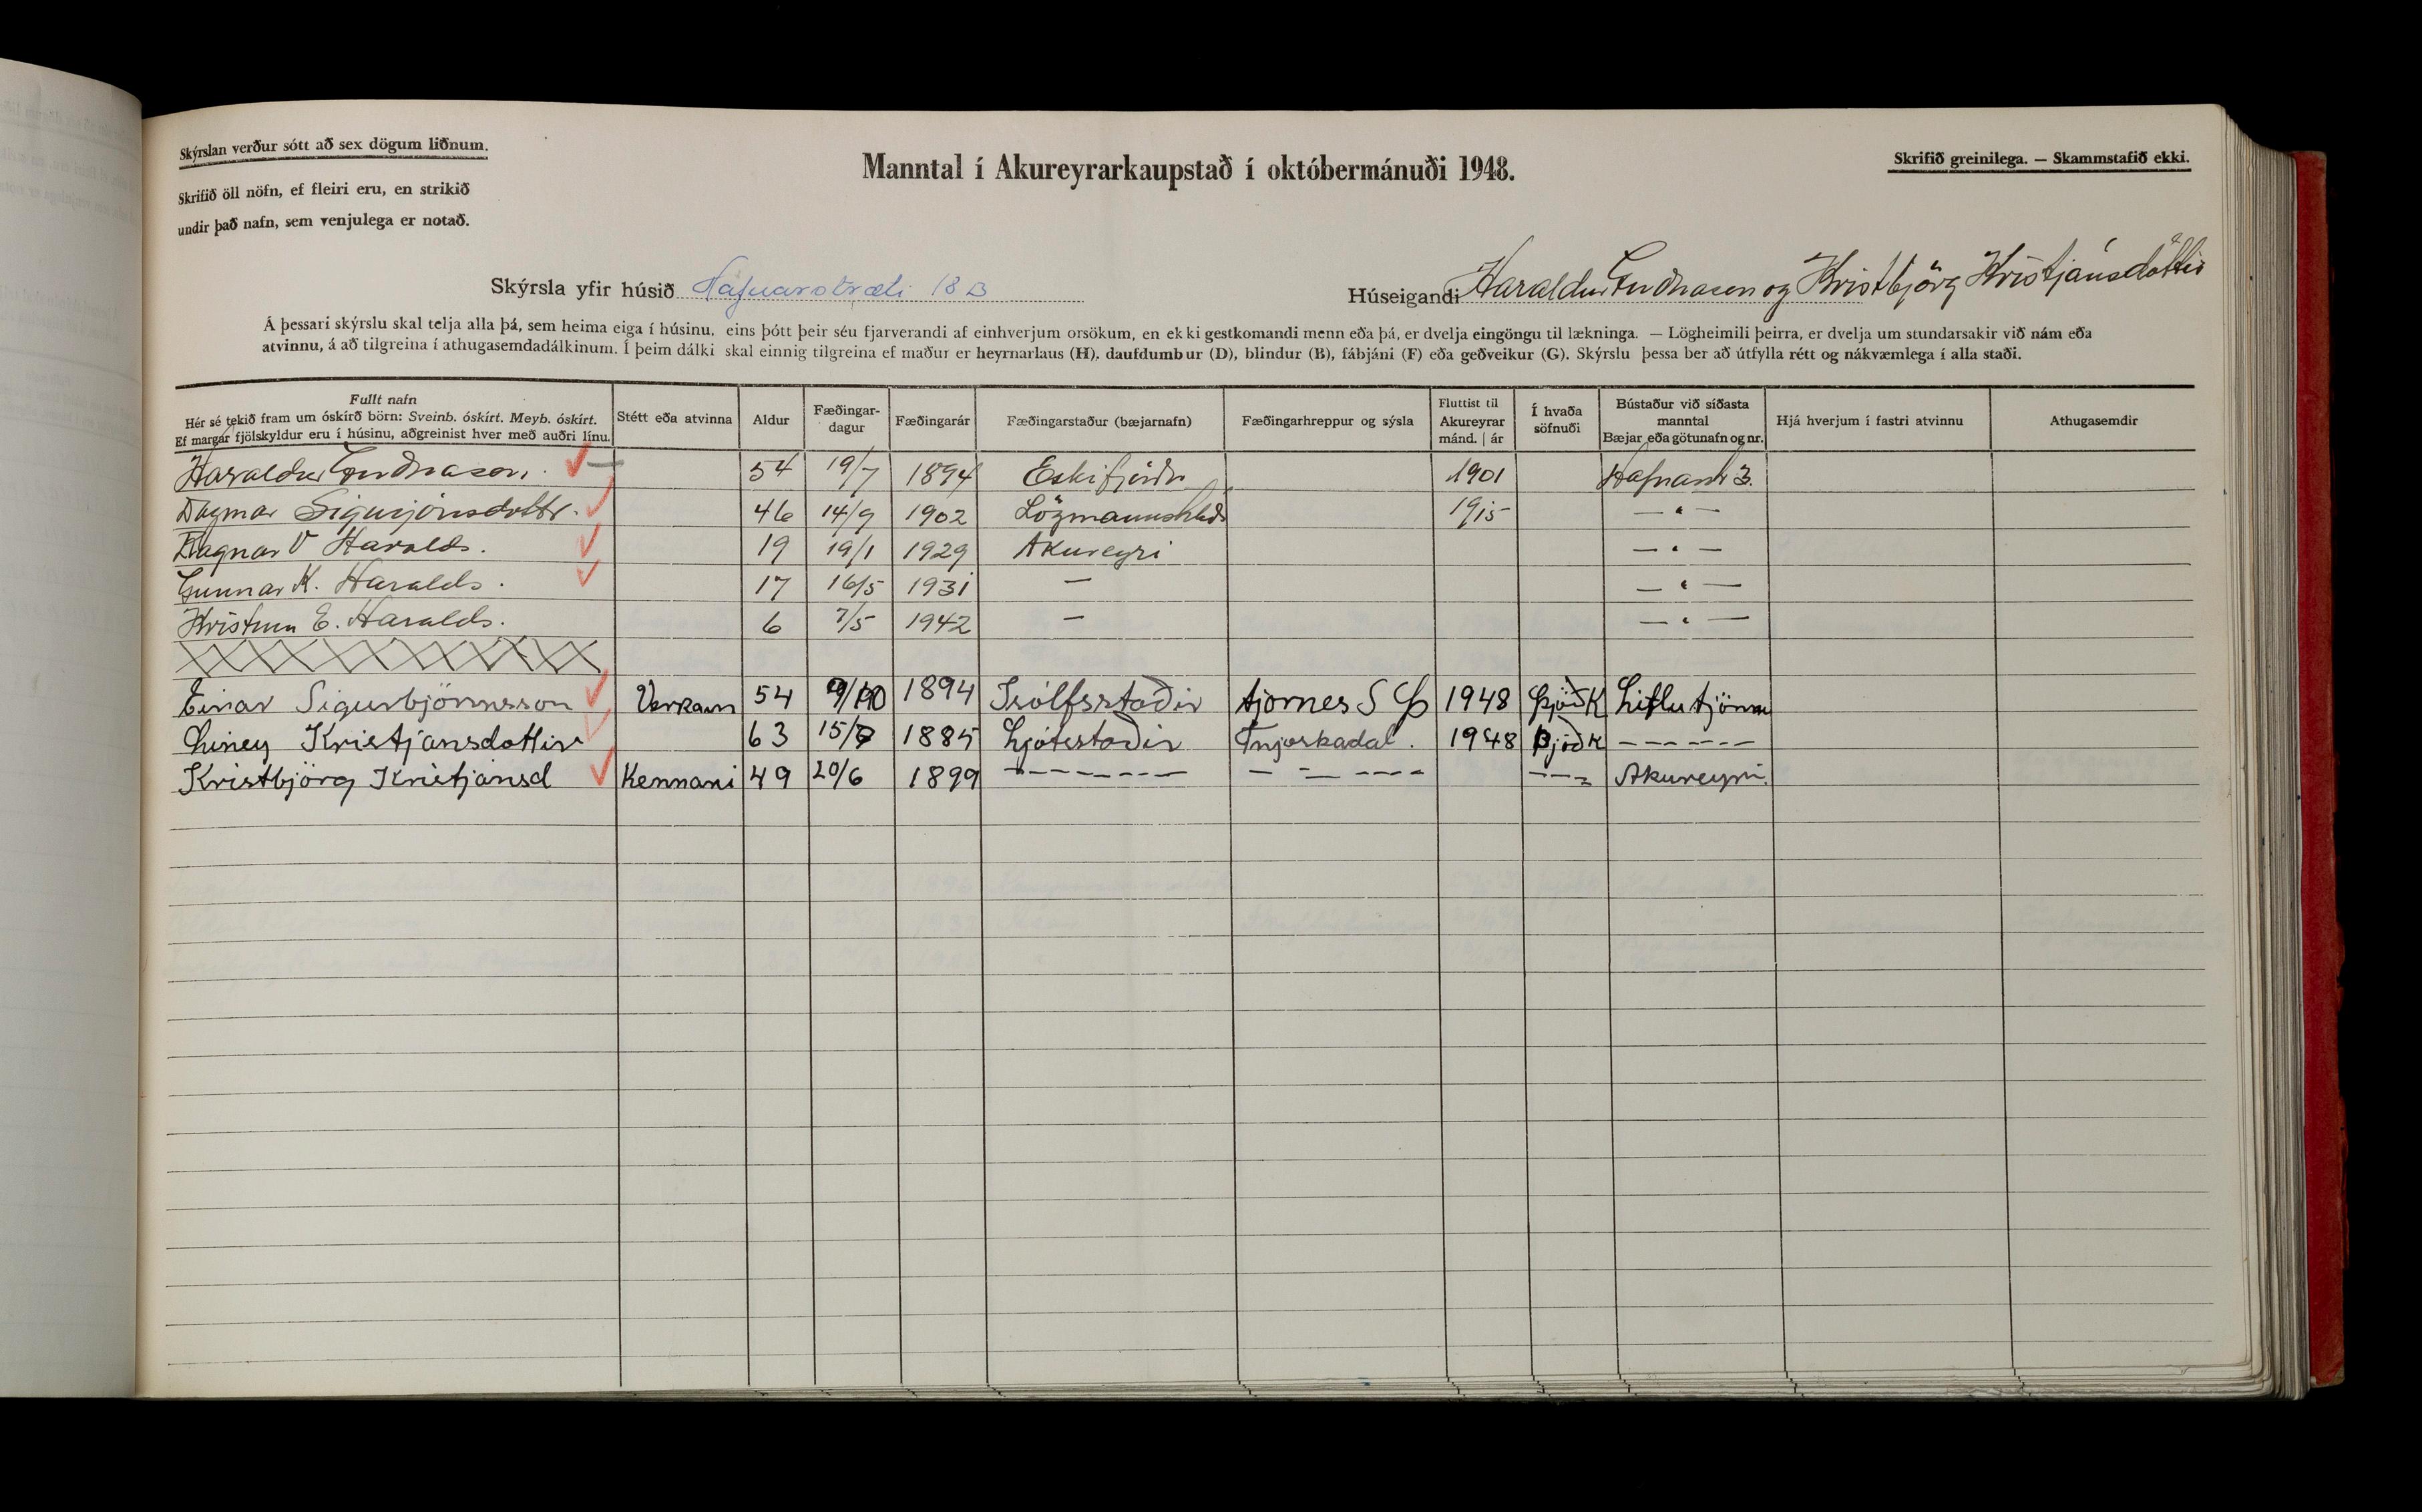 Skýrslan verður sótt að sex dögum liðnum.
Skrifið öll nöfn, ef fleiri eru, en strikið
undir það nafn, sem venjulega er notað.
Manntal í Akureyrarkaupstað í októbermánuði 1948.
Skrifið greinilega. — Skammstafið ekki.
Skýrsla yfir húsið Hafnarstræti 18 B
Húseigandi Haraldur Guðnason og Kristbjörg Kristjánsdóttir
Á þessari skýrslu skal telja alla þá, sem heima eiga í húsinu, eins þótt þeir séu fjarverandi af einhverjum orsökum, en ekki gestkomandi menn eða þá, er dvelja eingöngu til lækninga. — Lögheimili þeirra, er dvelja um stundarsakir við nám eða
atvinnu, á að tilgreina í athugasemdadálkinum. Í þeim dálki skal einnig tilgreina ef maður er heyrnarlaus (H), daufdumbur (D), blindur (B), fábjáni (F) eða geðveikur (G). Skýrslu þessa ber að útfylla rétt og nákvæmlega í alla staði.
Fullt nafn
Hér sé tekið fram um óskírð börn: Sveinb. óskírt. Meyb. óskírt.
Ef margar fjölskyldur eru í húsinu, aðgreinist hver með auðri línu.
Stétt eða atvinna
Aldur
Fæðingar-
dagur
Fæðingarár
Fæðingarstaður (bæjarnafn)
Fæðingarhreppur og sýsla
Fluttist til
Akureyrar
mánd. | ár
Í hvaða
söfnuði
Bústaður við síðasta
manntal
Bæjar eða götunafn og nr.
Hjá hverjum í fastri atvinnu
Athugasemdir
Haraldur Guðnason. 54 19/7 1894 Eskifirði 1901 Hafnarstr 3.
Dagmar Sigurjónsdottr. 46 14/9 1902 Lögmannshlíð 1915 — " —
Ragnar V Haralds. 19 19/1 1929 Akureyri — " —
Gunnar K. Haralds. 17 16/5 1931 — — " —
Kristinn E. Haralds. 6 7/5 1942 — — " —
Einar Sigurbjörnsson Verkam 54 9/10 1894 Ísólfsstaðir tjörnes S Þ 1948 Þjóð K Litlu tjörnu
Liney Kristjansdottir 63 15/ 1885 Ljótsstaðir Fnjoskadal. 1948 Þjóð K – – – – –
Kristbjörg Kristjánsd Kennari 49 20/6 1899 – – – – – – – – – – – – – – – Akureyri.